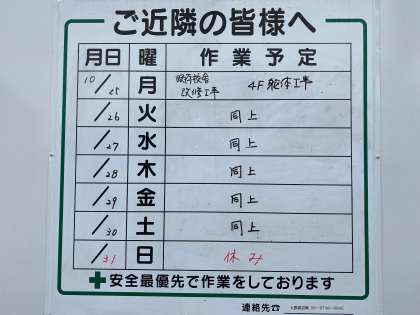 ご近隣の皆様へ
月日 曜 作業予定
10/25 月 既存校舎改修工事 4F 躯体工事
/26 火 同上
/27 水 同上
/28 木 同上
/29 金 同上
/30 土 同上
/31 日 休み
安全最優先で作業をしております
連絡先☎